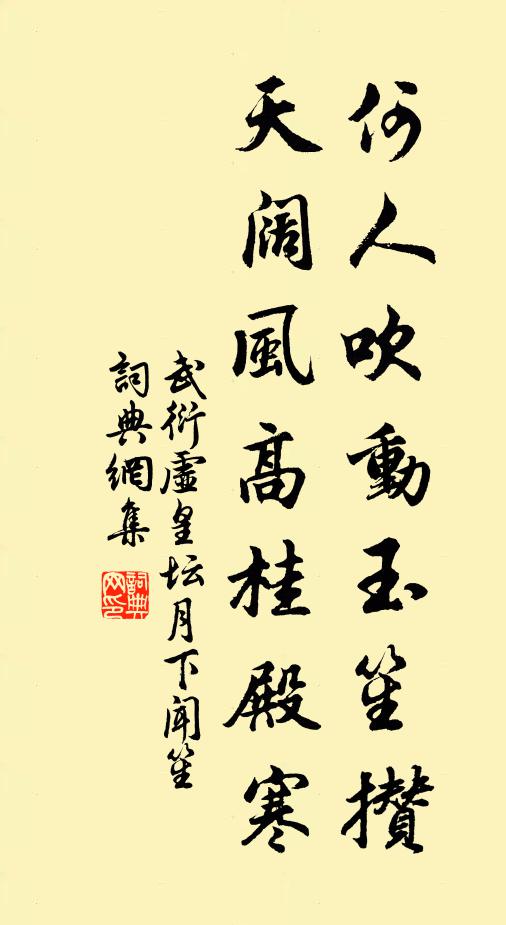 何人吹動玉笙攢
天阔風高桂殿寒
武衍虛皇坛月下闻笙
詞典網集
詞典网印